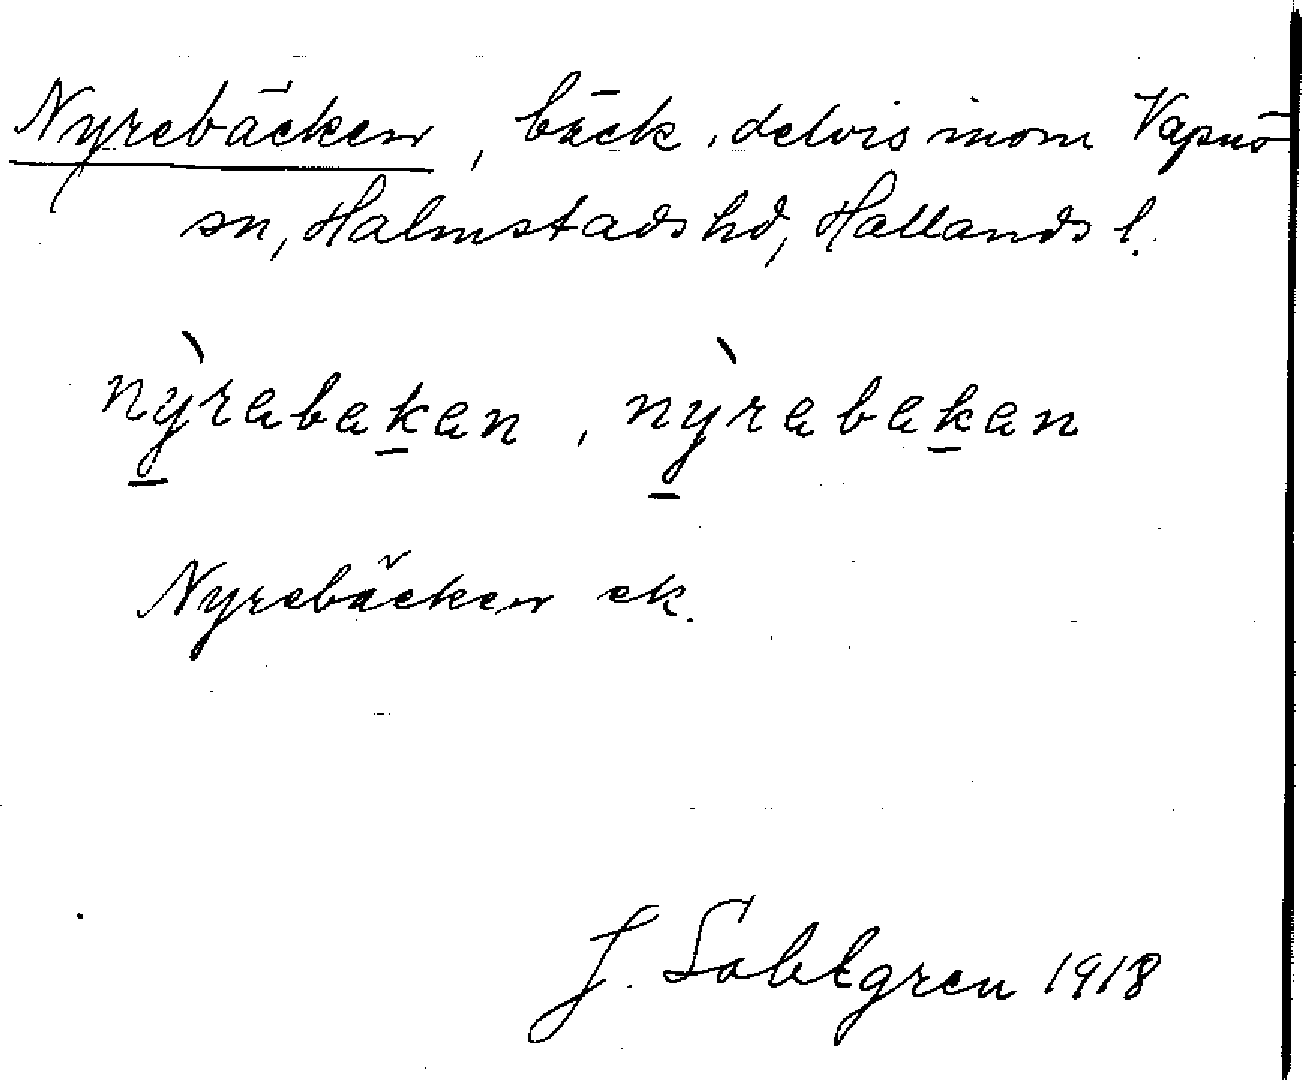 Nyrebäcken, bäck, delvis inom Vapnö
sn, Halmstads hd, Hallands l.
nỳrabakan, nỳrabakan
Nyrebäcken ek.
J. Sahlgren 1918